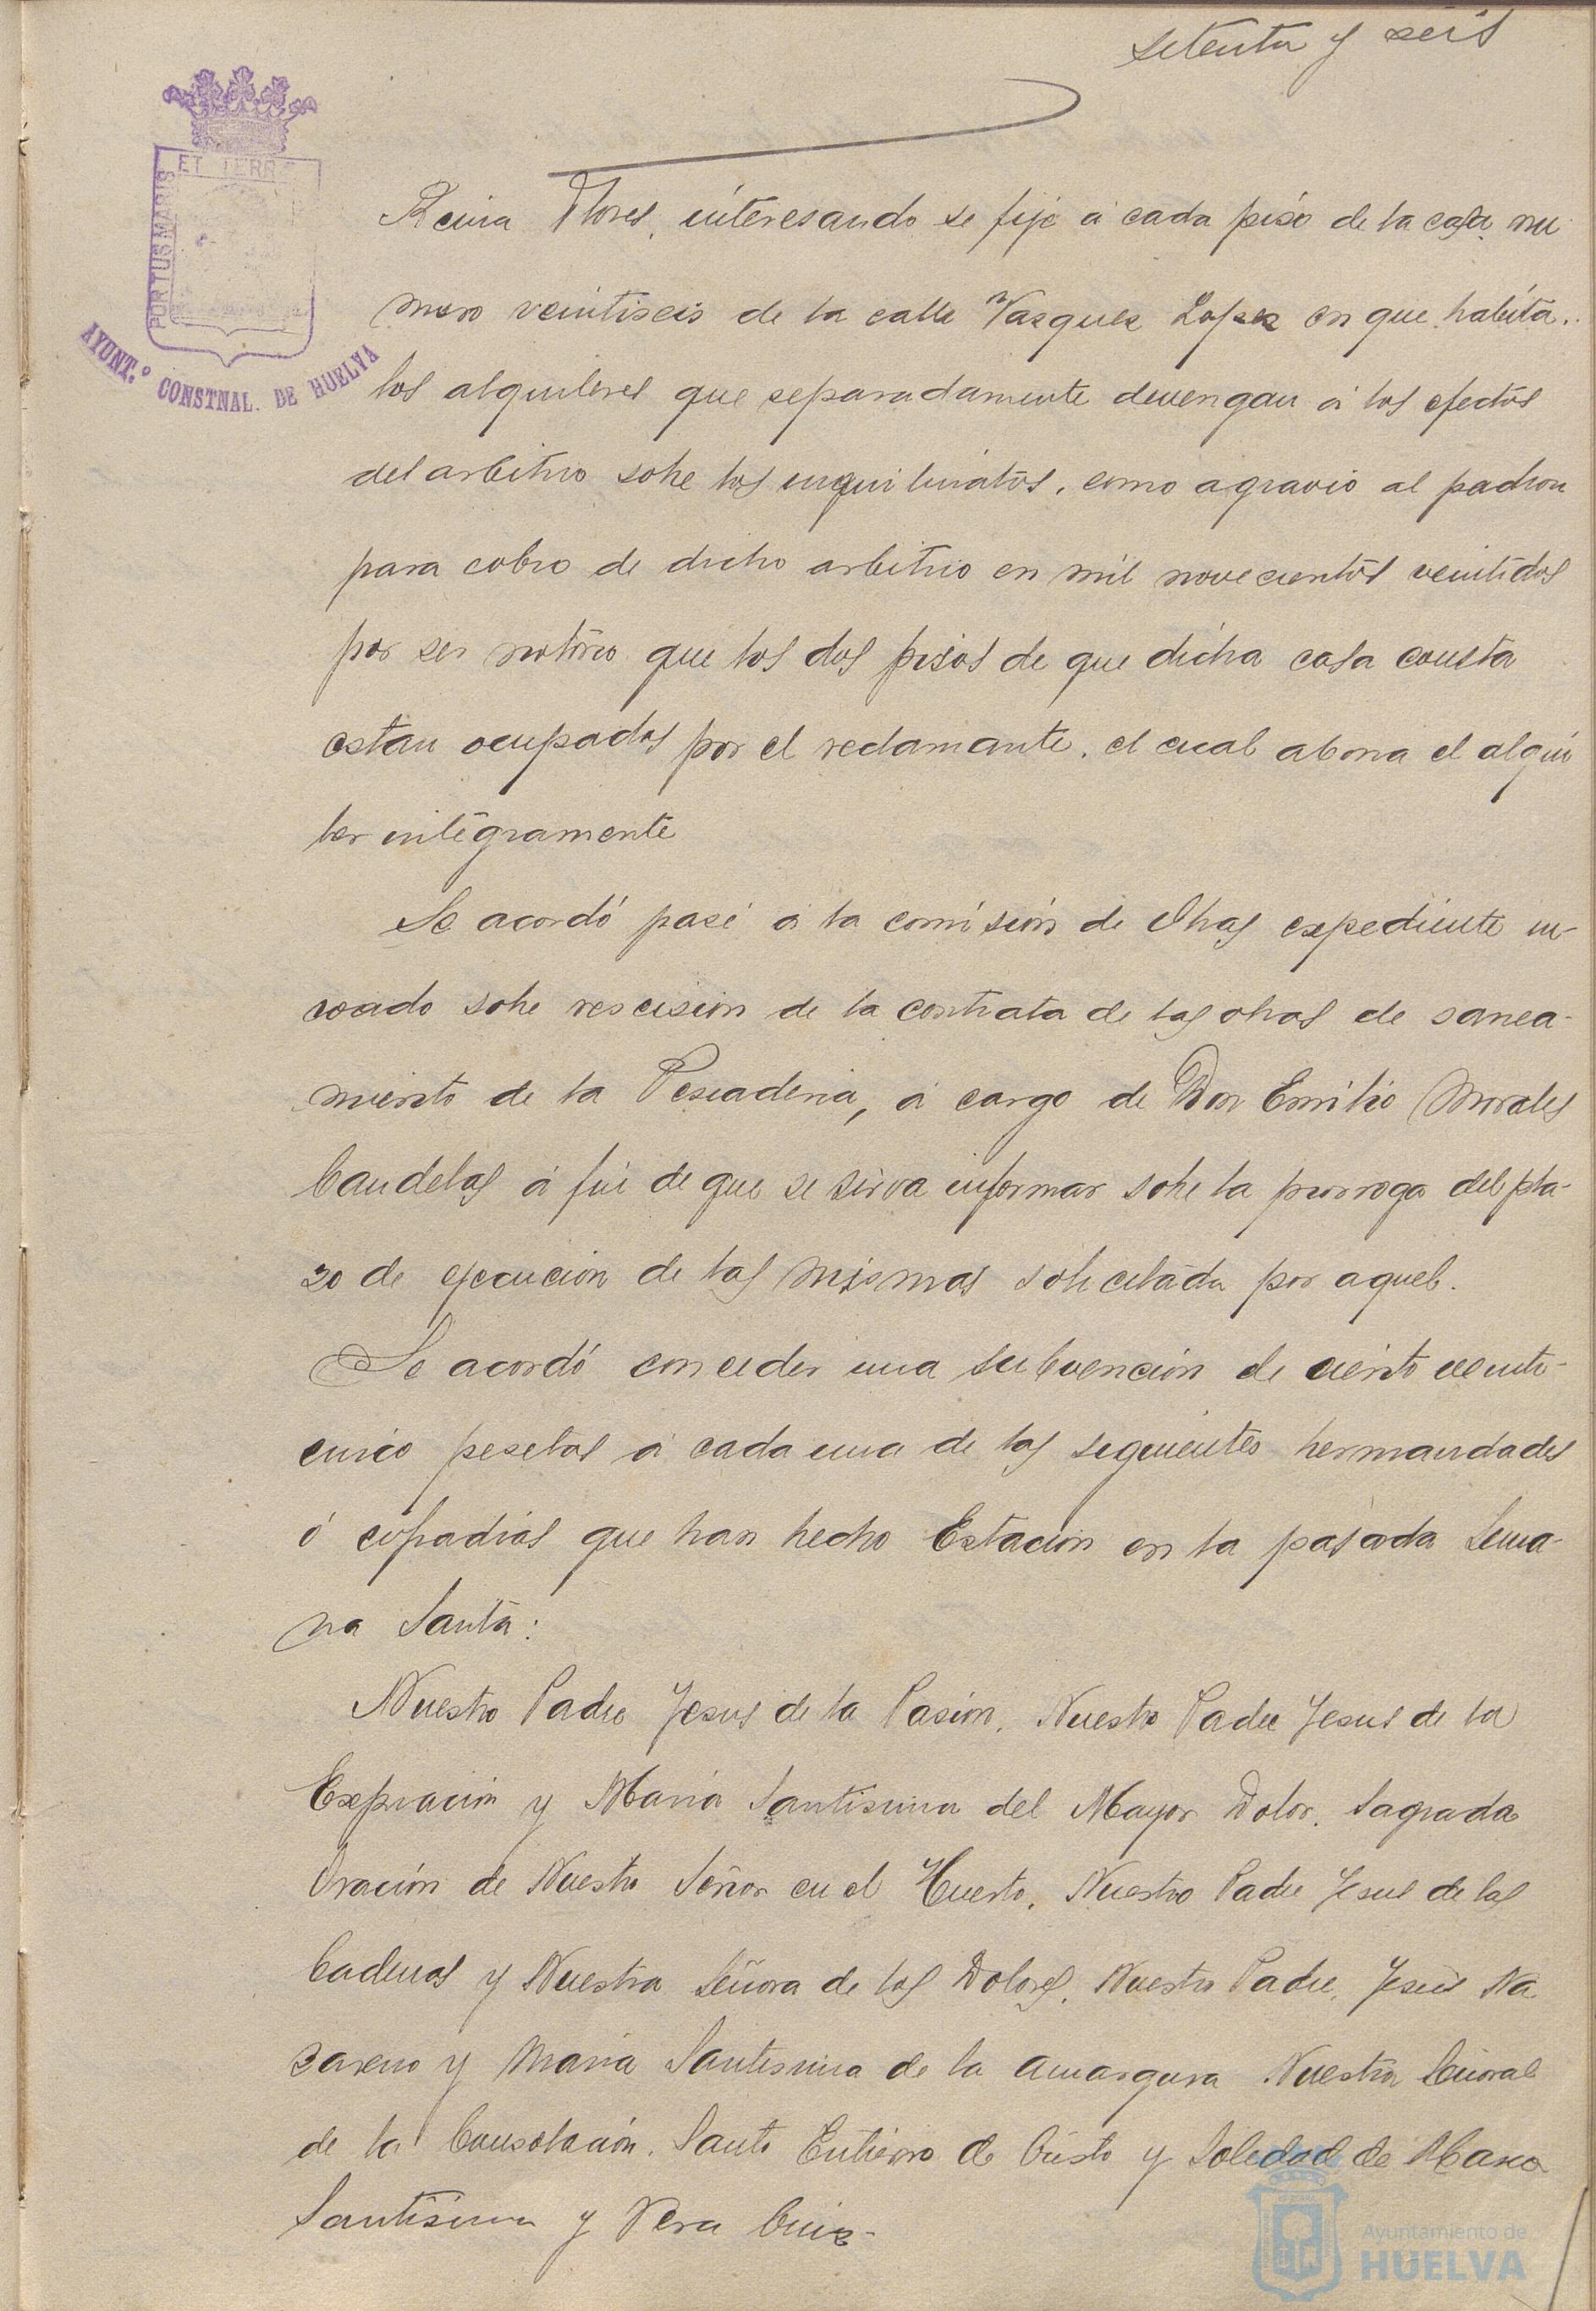 setenta y seis
ET TERR
PORTUS MARIS
AYUNT.º CONSTNAL. DE HUELVA
Reina Flores, interesando se fije á cada piso de la casa nu
mero veintiseis de la calle Vazquez Lopez en que habita,
los alquileres que separadamente devengan á los efectos
del arbitrio sobre los inquilinatos, como agravio al padron
para cobro de dicho arbitrio en mil novecientos veintidos
por ser notorio que los dos pisos de que dicha casa consta
estan ocupados por el reclamante, el cual abona el alqui
ler integramente
Se acordó pase á la comisión de Obras expediente in-
coado sobre rescision de la contrata de las obras de sanea-
miento de la Pescaderia, á cargo de Don Emilio Morales
Candelas á fin de que se sirva informar sobe la prorroga del pla-
zo de ejecucion de las mismas solicitada por aquel.
Se acordó conceder una subvención de ciento veinti-
cinco pesetas á cada una de las siguientes hermandades
ó cofradias que han hecho Estación en la pasada Sema-
na Santa:
Nuestro Padre Jesus de la Pasión, Nuestro Padre Jesus de la
Expiracion y Maria Santisima del Mayor Dolor. Sagrada
Oración de Nuestro Señor en el Huerto, Nuestro Padre Jesus de las
Cadenas y Nuestra Señora de los Dolores, Nuestro Padre Jesús Na
zareno y Maria Santisima de la Amargura Nuestra Señora
de la Consolación. Santo Entierro de Cristo y Soledad de Maria
Santisima y Vera Cruz-
Ayuntamiento de
HUELVA